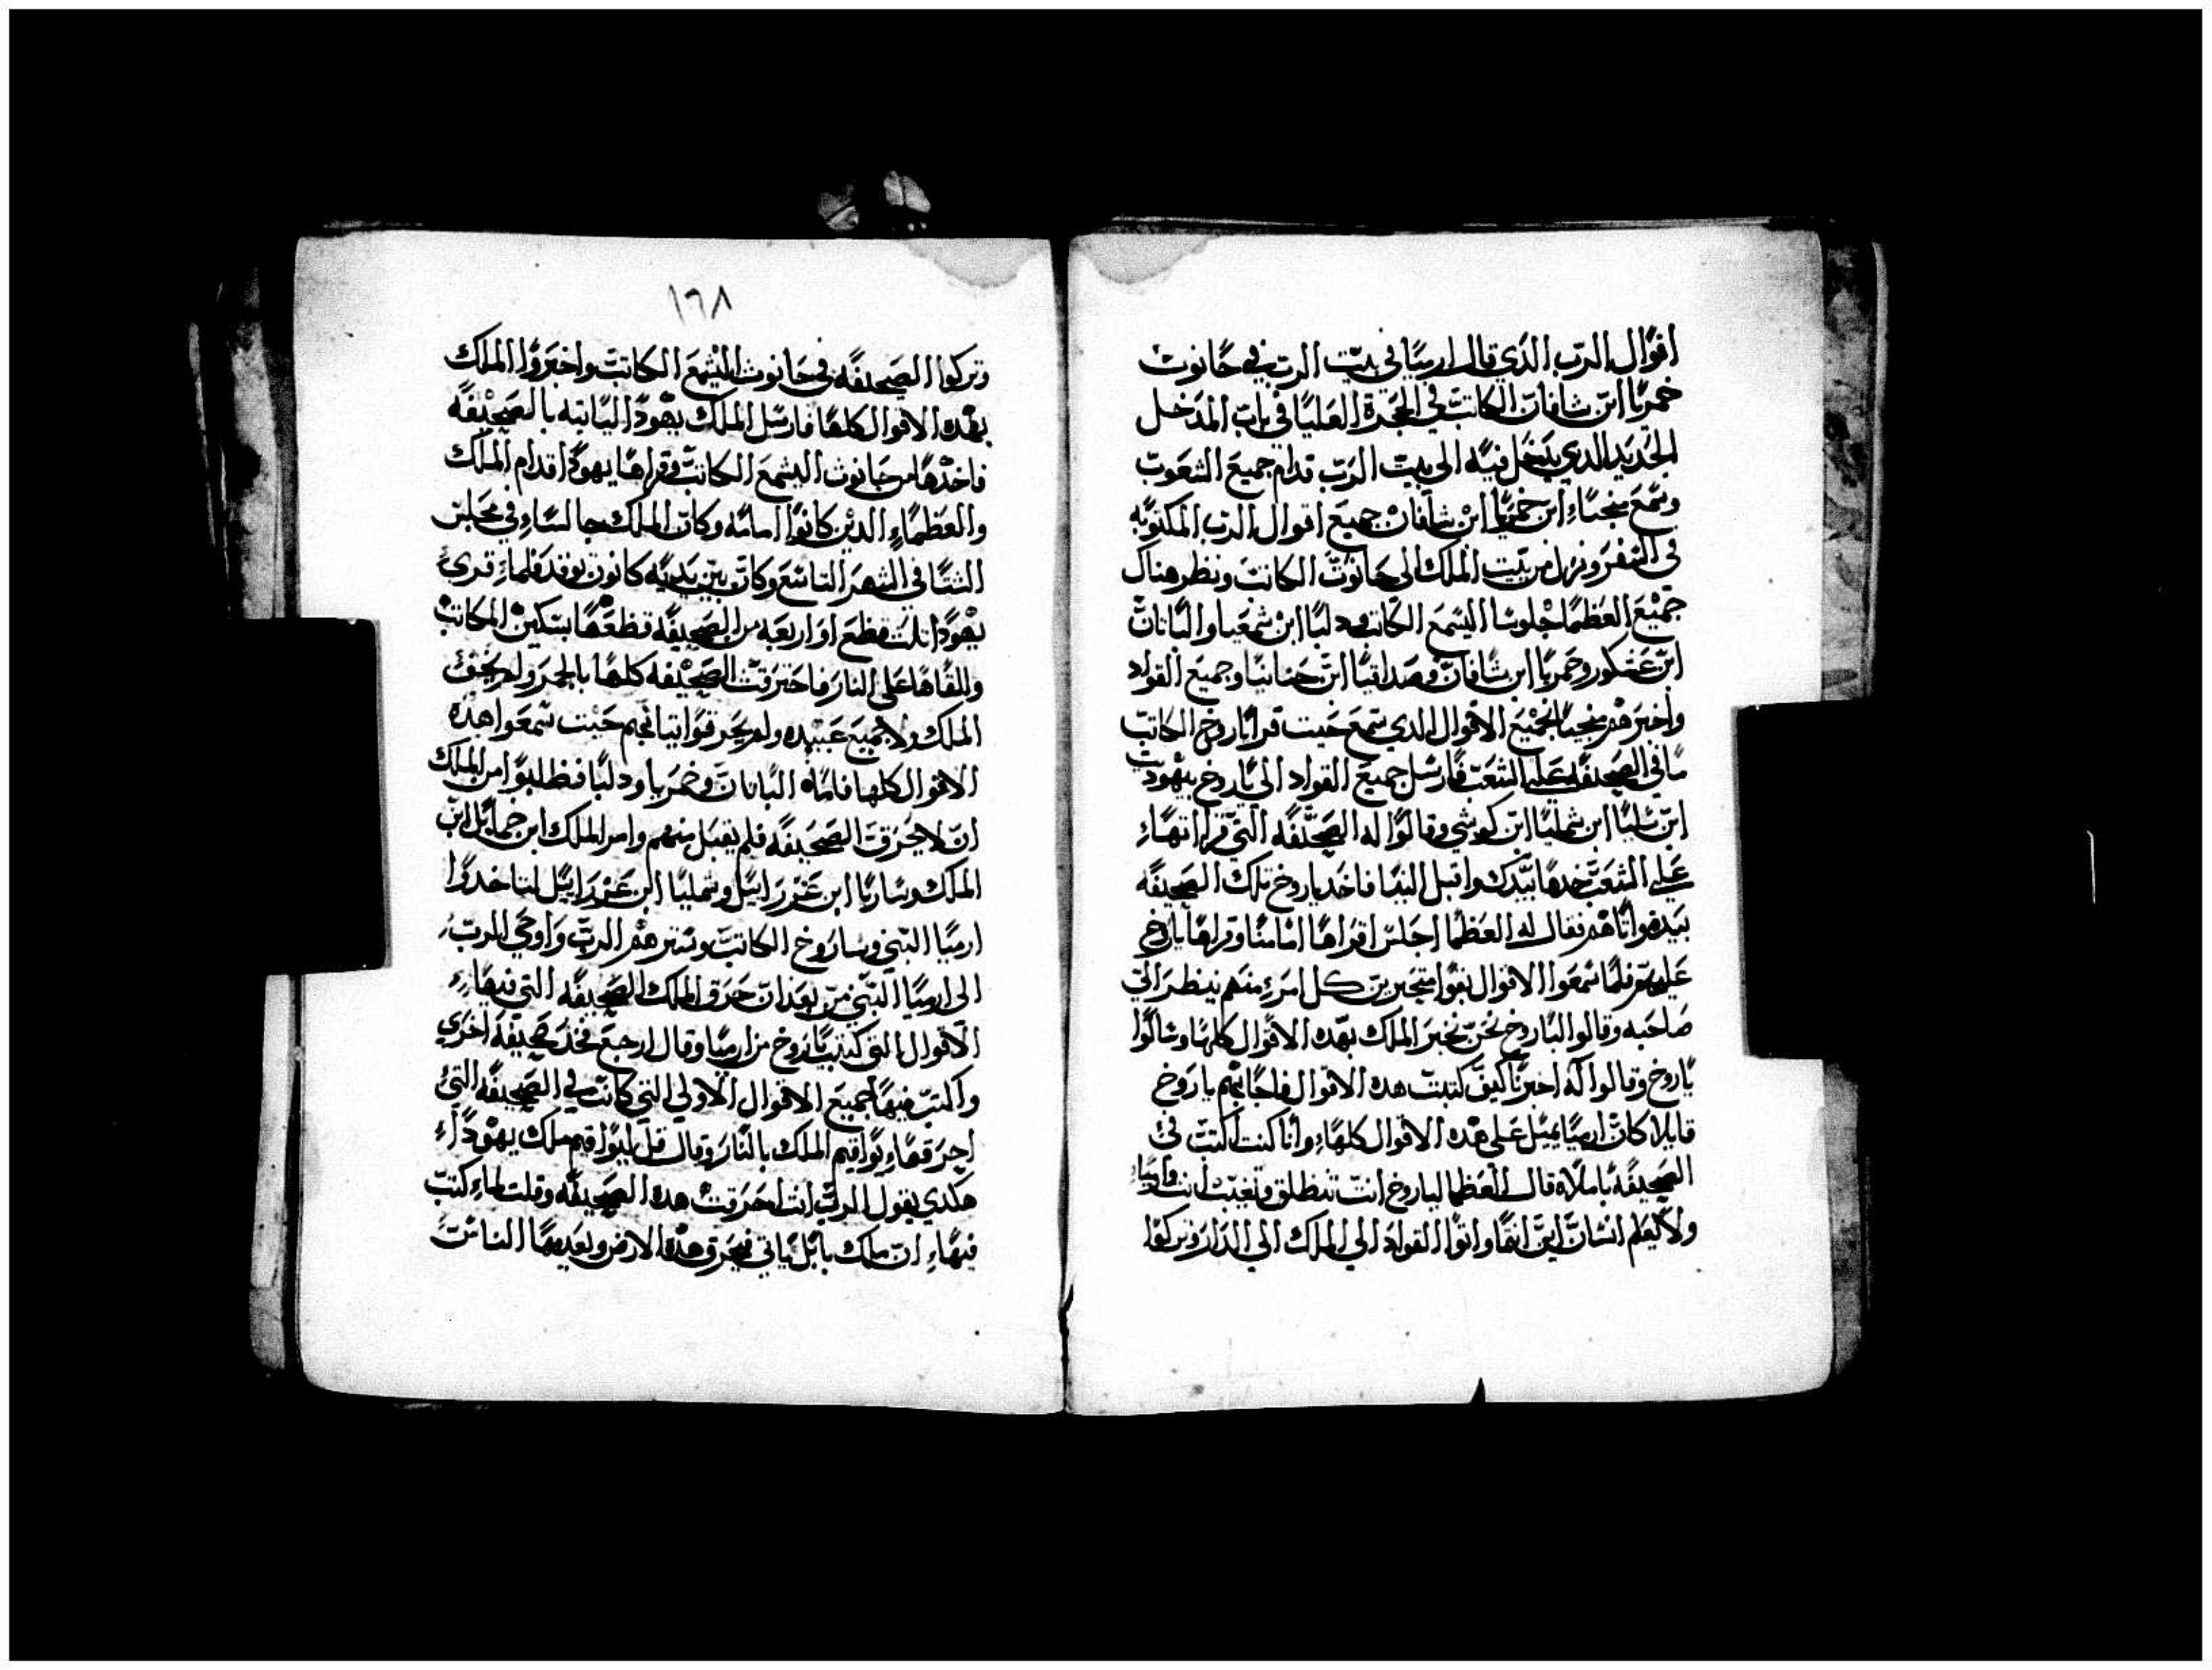 اقوال الرب الذي قال ارميا في بيت الرب في حانوت
خمريا ابن شافان الكاتب في الحجرة العليا في باب المدخل
الجديد الدي يدخل فيه الى بيت الرب قدام جميع الشعوب
وسمع منجياء ابن خمريا ابن شافان جميع اقوال الرب المكتوبه
في السفر ونزل من بيت الملك الى حانوت الكاتب ونظر هناك
جميع العظما جلوسا اليشمع الكاتب ودليا ابن شمعيا والياناتان
ابن عنكور وخمريا ابن شافان وصداقيا ابن حنانيا وجميع القواد
واخبرهم منجيا بجميع الاقوال الدي سمع حيت قرا باروخ الكاتب
ما في الصحيفه على الشعب فارسل جميع القواد الى باروخ بيهوديت
ابن شليا ابن شمليا ابن كوشي وقالوا له الصحيفه التي قراتهاء
على الشعب خدها بيدك واقبل الينا فاخد باروخ تلك الصحيفه
بيده واتاهم فقال له العظما اجلس اقراها امامنا وقراها باروخ
عليهم فلما سمعوا الاقوال بقوا متحيرين كل امرء منهم ينظر الي
صاحبه وقالوا لباروخ نحن نخبر الملك بهده الاقوال كلها وسالوا
باروخ وقالوا له اخبرنا كيف كتبت هده الاقوال فاجابهم باروخ
قايلا كان ارميا يميل على هده الاقوال كلهاء وانا كنت اكتب في
الصحيفه باملاه قال العظما لباروخ انت تنطلق وتغيب انت وارمياء
ولا يعلم انسان اين انتما واتوا القواد الي الملك الي الدار وتركوا
١٦٨
وتركوا الصحيفه في حانوت اليشمع الكاتب واخبروا الملك
بهده الاقوال كلها فارسل الملك يهودا لياتيه بالصحيفه
فاخدها من حانوت اليشمع الكاتب وقراها يهودا قدام الملك
والعظماء الدين كانوا امامه وكان الملك جالساء في مجلس
الشتا في الشهر التاسع وكان بين يديه كانون يوقد فلماء قرى
يهودا تلت قطع او اربعه من الصحيفه قطعها بسكين الكاتب
والقاها على النار فاحترقت الصحيفه كلها بالجمر ولم يخف
الملك ولا جميع عبيده ولم يخرقوا ثيابهم حيت سمعوا هده
الاقوال كلها فاماه الياناتان وخمريا ودليا فطلبوا من الملك
ان لا يحرق الصحيفه فلم يقبل منهم وامر الملك ابن حمايل ابن
الملك وساريا ابن عزرراييل وشمليا ابن عزراييل لياخدوا
ارميا النبي وباروخ الكاتب وسترهم الرب واوحي الرب
الى ارميا النبي من بعد ان حرق الملك الصحيفه التي فيهاء
الاقوال التي كتبت باروخ من ارميا وقال ارجع فخد صحيفه اخرى
واكتب فيها جميع الاقوال الاولي التي كانت في الصحيفه التي
احرقهاء يواقيم الملك بالنار وقال قل ليواقيم ملك يهوداء
هكدي يقول الرب انت احرقت هده الصحيفه وقلت لماء كتبت
فيهاء ان ملك بابل ياتي فيحرق هده الارض ويعدمها الناس